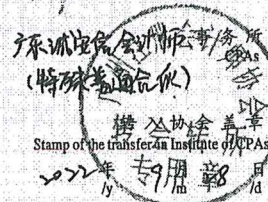 广东诚安信会计师事务所
CPAs
(特殊普通合伙)
转入协会盖章
Stamp of the transfer-in Institute of CPAs
2022年9月8日
/y /m /d